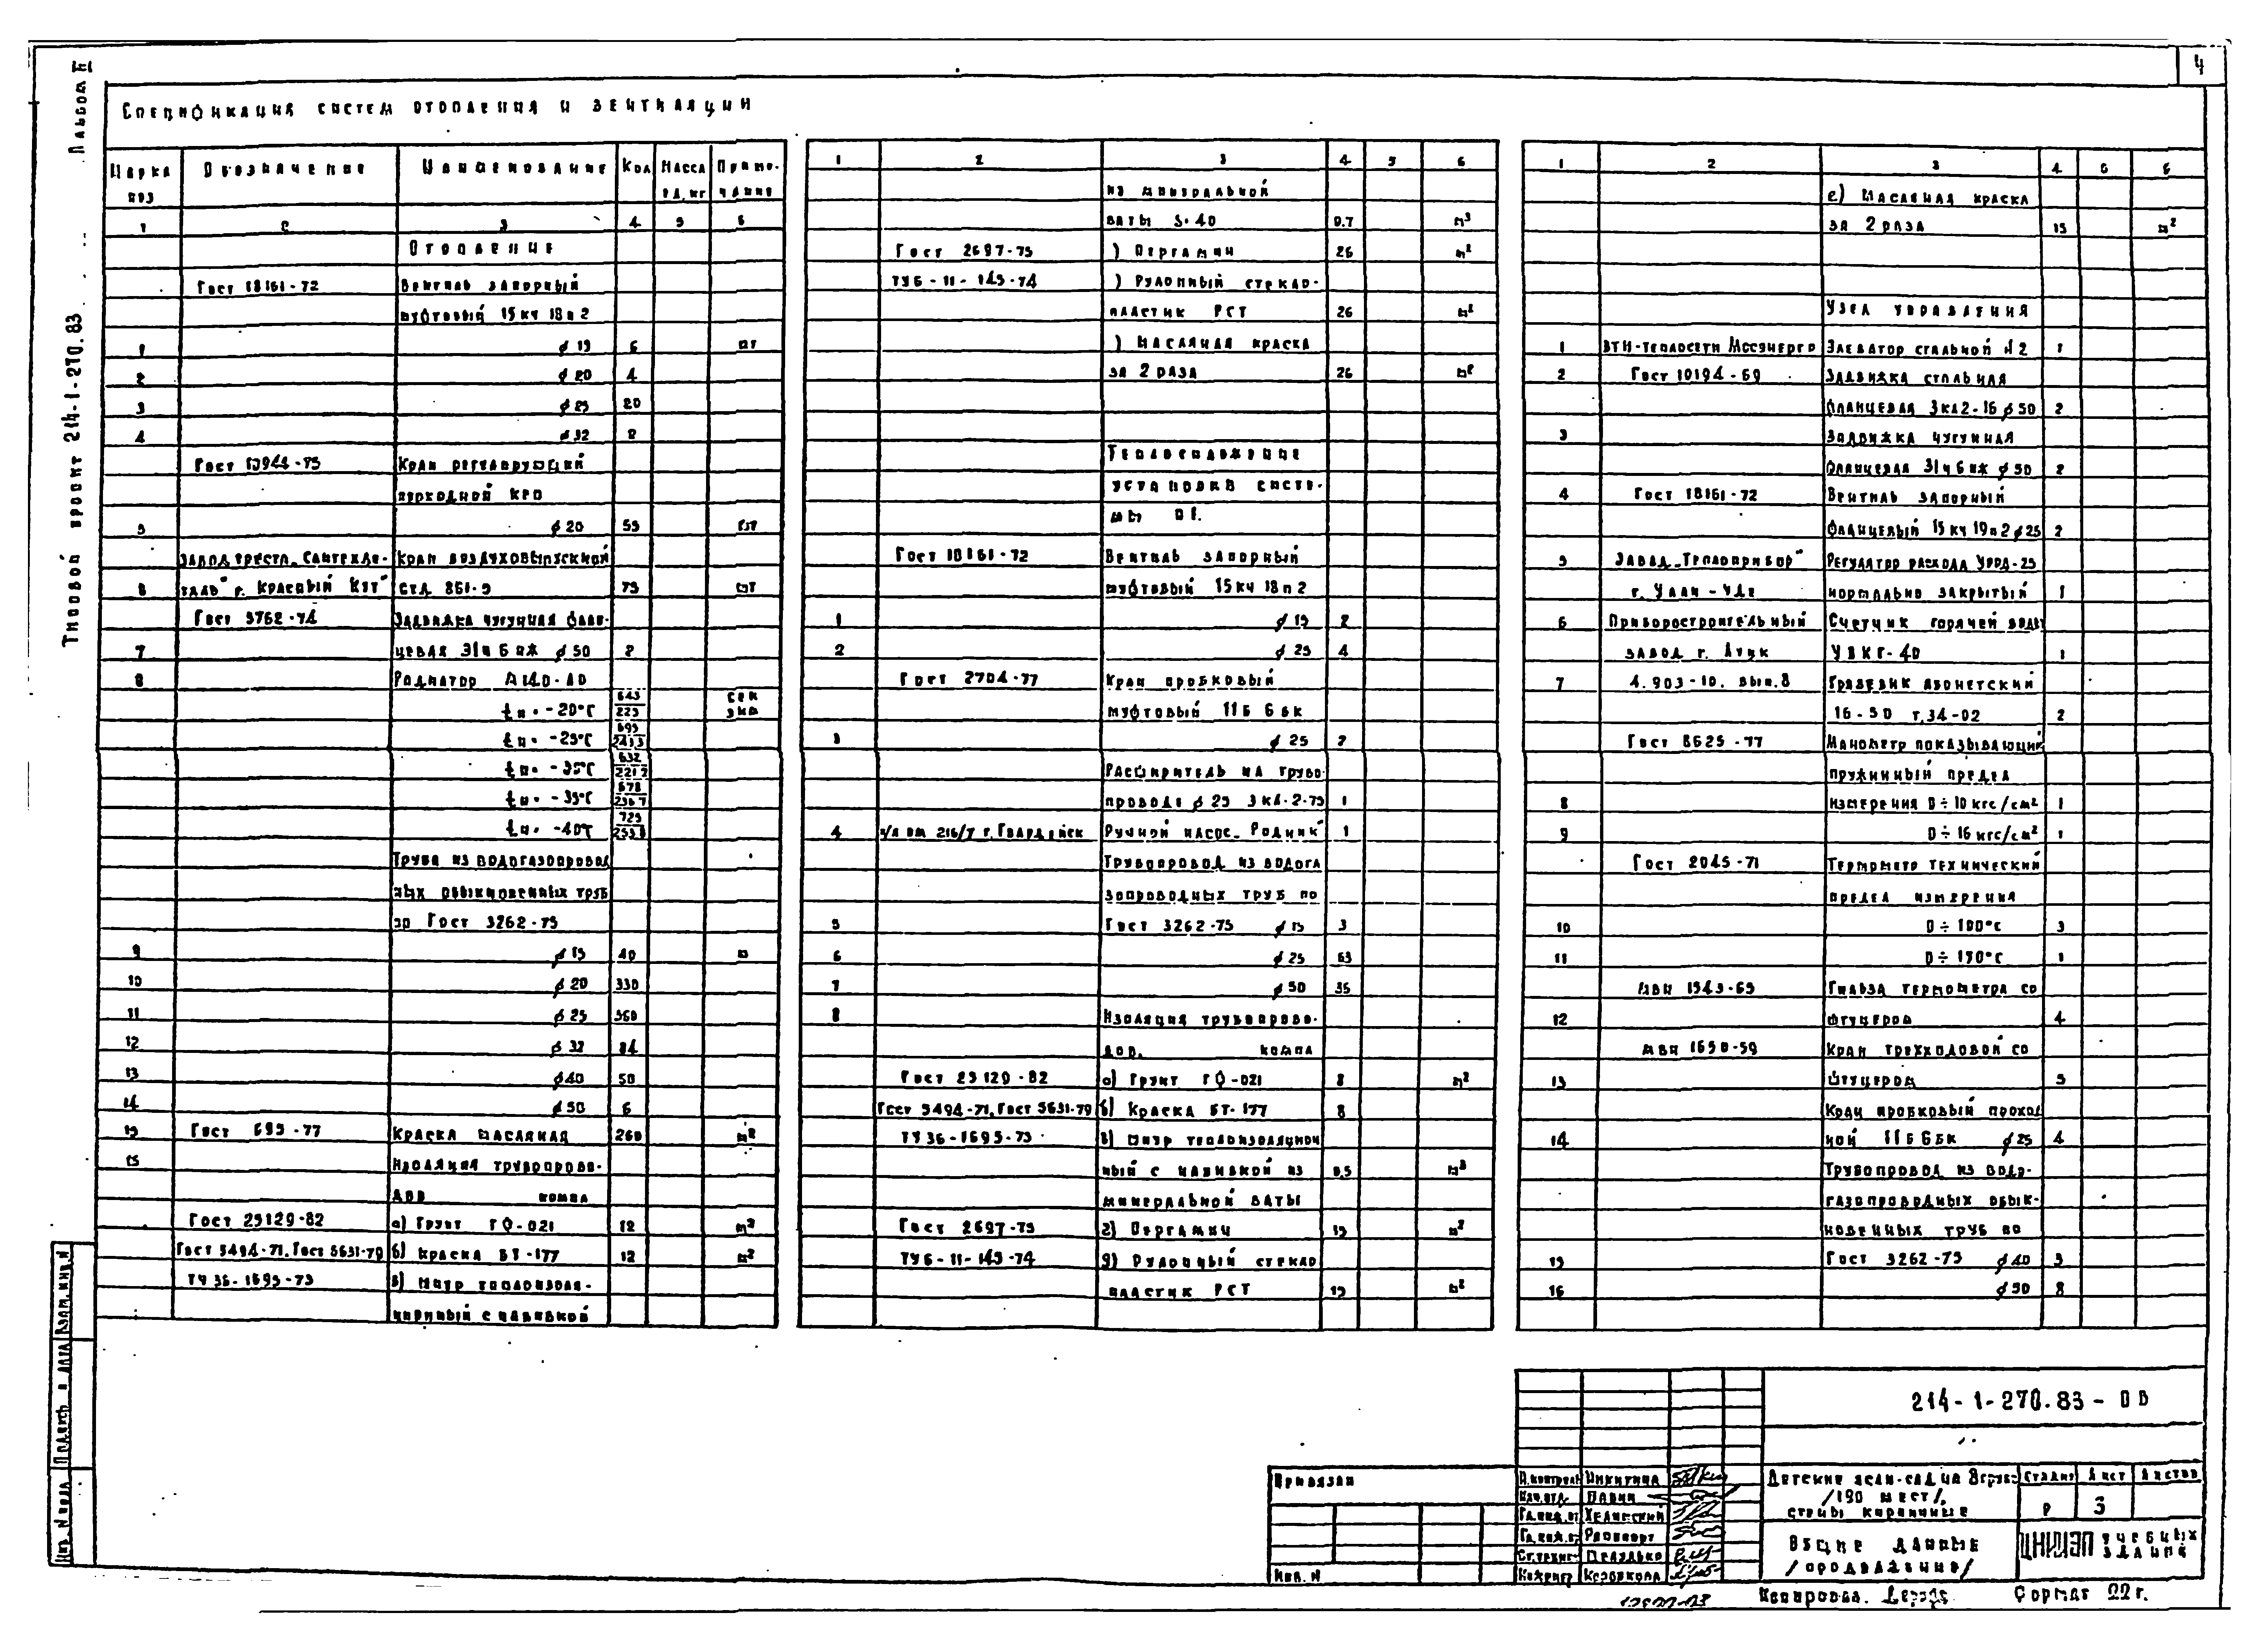 4
Альбом II
Типовой проект 214-1-270.83
Спецификация систем отопления и вентиляции
Марка поз Обозначение Наименование Кол Масса ед.кг Примечание
1 2 3 4 5 6
Отопление
Гост 18161-72 Вентиль запорный
муфтовый 15кч 18п2
1 ф 15 6 шт
2 ф 20 4
3 ф 25 20
4 ф 32 2
Кран регулирующий
проходной КРП
5 ф 20 55 шт
Завод треста „Сантехде- Кран воздуховыпускной
6 таль" г. Красный Кут СТД 861-5 75 шт
Гост 5762-74 Задвижка чугунная флан-
7 цевая 31ч 6 нж ф 50 2
8 Радиатор М140-АО
tн.-20°С 223 сек экм
tн.-25°С
tн.-30°С 632
tн.-35°С 678
tн.-40°С 725
Труба из водогазопровод
ных обыкновенных труб
по Гост 3262-75
9 ф 15 40 м
10 ф 20 330
11 ф 25 360
12 ф 32 84
13 ф 40 50
14 ф 50 6
15 Гост 695-77 Краска масляная 260 м2
Изоляция трубопрово-
дов компл
Гост 25129-82 а) Грунт ГФ-021 12 м2
Гост 5494-71, Гост 5631-79 б) Краска БТ-177 12 м2
ТУ 36-1695-73 в) Матр теплоизоля-
ционный с набивкой
1 2 3 4 5 6
из минеральной
ваты S-40 0.7 м3
Гост 2697-75 ) Пергамин 26 м2
ТУ6-11-145-74 ) Рулонный стекло-
пластик РСТ 26 м2
) Масляная краска
за 2 раза 26 м2
Теплоснабжение
установки систе-
мы П1.
Гост 18161-72 Вентиль запорный
муфтовый 15кч 18п2
1 ф 15 2
2 ф 25 4
Гост 2704-77 Кран пробковый
муфтовый 11Б 6бк
3 ф 25 2
Расширитель на трубо
проводе ф 25 3К4-2-75 1
4 п/я ом 216/7 г. Гвардейск Ручной насос „Родник" 1
Трубопровод из водога
зопроводных труб по
5 Гост 3262-75 ф 15 3
6 ф 25 65
7 ф 50 35
8 Изоляция трубопрово-
дов. компл
Гост 25129-82 а) Грунт ГФ-021 8 м2
Гост 5494-71, Гост 5631-79 б) Краска БТ-177 8
ТУ 36-1695-73 в) Матр теплоизоляцион
ный с набивкой из 0,5 м3
минеральной ваты
Гост 2697-75 г) Пергамин 15 м2
ТУ6-11-145-74 д) Рулонный стекло
пластик РСТ 15 м2
1 2 3 4 5 6
е) Масляная краска
за 2 раза 15 м2
Узел управления
1 ВТИ-теплосети Мосэнерго Элеватор стальной №2 1
2 Гост 10194-69 Задвижка стальная
фланцевая 3кл2-16 ф 50 2
3 Задвижка чугунная
фланцевая 31ч 6 нж ф 50 2
4 Гост 18161-72 Вентиль запорный
фланцевый 15кч 19п2 ф 25 2
5 Завод „Теплоприбор" Регулятор расхода УРРД-25
г. Улан-Удэ нормально закрытый 1
6 Приборостроительный Счетчик горячей воды
завод г. УВКГ-40 1
7 4.903-10. вып.8 Грязевик абонетский
16-50 т.34-02 2
Гост 8625-77 Манометр показывающий
пружинный предел
8 измерения 0÷10 кгс/см2 1
9 0÷16 кгс/см2 1
Гост 2045-71 Термометр технический
предел измерения
10 0÷100°С 3
11 0÷150°С 1
МВН 1543-65 Гильза термометра со
12 штуцером 4
МВН 1650-59 Кран трехходовой со
13 штуцером 5
Кран пробковый проход
14 ной 11Б 6бк ф 25 4
Трубопровод из водо-
газопроводных обык-
новенных труб по
15 Гост 3262-75 ф 40 3
16 ф 50 8
Инв. N подл Подпись и дата Взам.инв.N
Привязан
Инв. N
214-1-270.83-ОВ
Н.контроль Никитина
Нач.отд.
Гл.инж.пр
Рапопорт
Ст.техник
Инженер
Детские ясли-сад на 8 групп
/190 мест/,
стены кирпичные
Стадия Лист Листов
Р 3
Общие данные
/продолжение/
ЦНИИЭП учебных зданий
Копировал. Формат 22г.